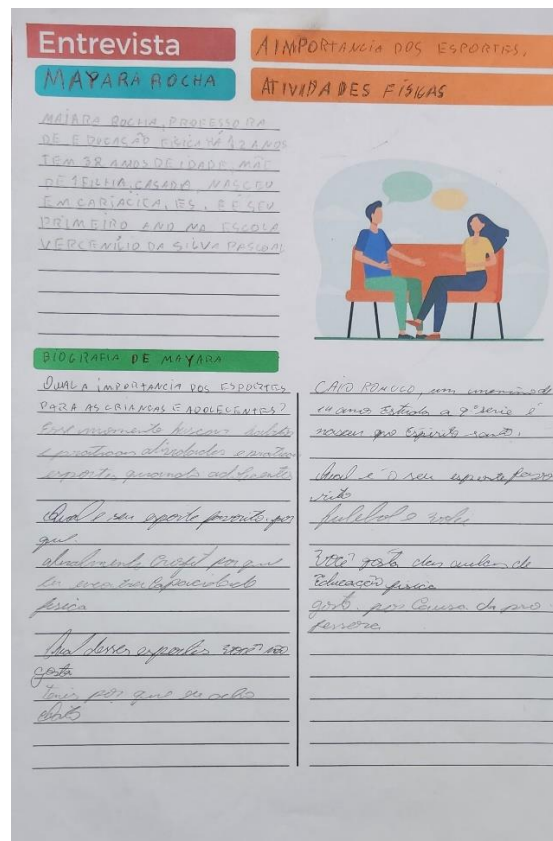 Entrevista
A IMPORTANCIA DOS ESPORTES,
MAYARA ROCHA
ATIVIDADES FÍSICAS
MAIARA ROCHA, PROFESSORA
DE EDUCAÇÃO FISICA HÁ 12 ANOS
TEM 38 ANOS DE IDADE, MÃE
DE 1 FILHA, CASADA, NASCEU
EM CARIACICA, ES, E É SEU
PRIMEIRO ANO NA ESCOLA
VERCENILIO DA SILVA PASCOAL
BIOGRAFIA DE MAYARA
QUAL A IMPORTANCIA DOS ESPORTES
PARA AS CRIANÇAS E ADOLECENTES?
Esse momento buscam
e praticam atividades e
esportes quando
Qual e seu esporte favorito, por
que.
atualmente por que
capacidade
fisica
Qual desses esportes você não
gosta
tenis por que eu acho
chato
CAIO ROMULO, um menino de
14 anos Estuda a 9º serie é
no Espirito santo.
Qual é o seu esporte favo
rito
futebol e volei
Você gosta das aulas de
Educação fisica
gosto, por causa da pro
fessora